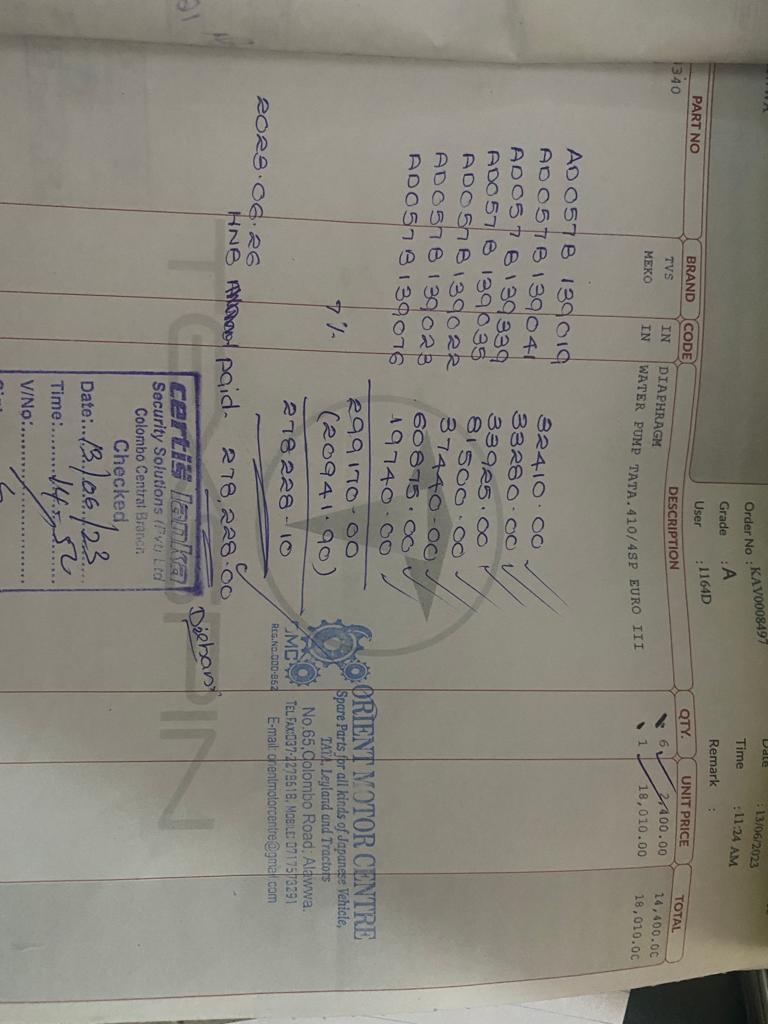 Date : 13/06/2023
Order No : KAV0008497
Time : 11:24 AM
Grade : A
Remark :
User : 1164D
PART NO BRAND CODE DESCRIPTION QTY. UNIT PRICE TOTAL
1340 TVS IN DIAPHRAGM 6 2,400.00 14,400.00
MEKO IN WATER PUMP TATA.410/4SP EURO III 1 18,010.00 18,010.00
AD057B 139019 32410.00
AD057B 139041 33280.00
AD057B 139339 33925.00
AD057B 139035 81500.00
AD057B 139022 37440.00
AD057B 139023 60875.00
AD057B 139076 19740.00
299170.00
7% (20941.90)
278228.10
2023.06.26
HNB paid 278,228.00
ORIENT MOTOR CENTRE
Spare Parts for all kinds of Japanese Vehicle,
TATA, Leyland and Tractors
No.65,Colombo Road, Alawwa.
TEL FAX:037-2278618, MOBILE: 0717573291
E-mail: orientmotorcentre@gmail.com
OMC
REG.No.DOO-862
certis lanka
Security Solutions (Pvt) Ltd
Colombo Central Branch
Checked
Date: 13/06/23
Time:
V/No: